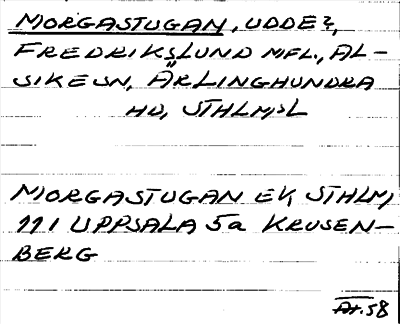 MORGASTUGAN, UDDEZ,
FREDRIKSLUND MFL., AL-
SIKE SN, ÄRLINGHUNDRA
HD, STHLMS L
MORGASTUGAN EK, STHLM,
111 UPPSALA 5a KRUSEN-
BERG